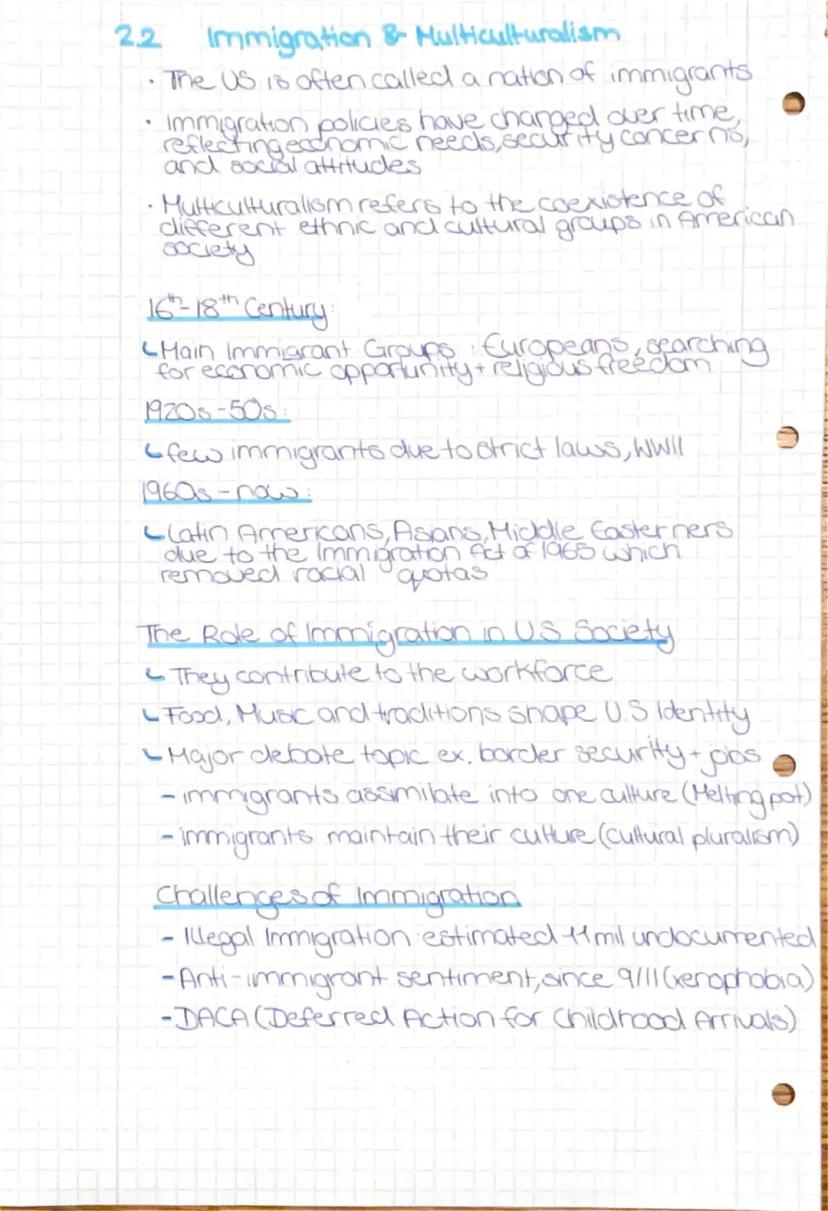 2.2 Immigration & Multiculturalism
· The US is often called a nation of immigrants
· Immigration policies have changed over time,
reflecting economic needs, security concerns,
and social attitudes
· Multiculturalism refers to the coexistence of
different ethnic and cultural groups in American
society
16th-18th Century:
↳ Main Immigrant Groups: Europeans, searching
for economic opportunity + religious freedom
1920s-50s:
↳ few immigrants due to strict laws, WWII
1960s - now:
↳ Latin Americans, Asians, Middle Easterners
due to the Immigration Act of 1965 which
removed racial quotas
The Role of Immigration in US Society
↳ They contribute to the workforce
↳ Food, Music and traditions shape U.S Identity
↳ Major debate topic ex. border security + jobs
- immigrants assimilate into one culture (Melting pot)
- immigrants maintain their culture (cultural pluralism)
Challenges of Immigration
- Illegal Immigration: estimated 11 mil undocumented
- Anti-immigrant sentiment, since 9/11 (xenophobia)
- DACA (Deferred Action for Childhood Arrivals)